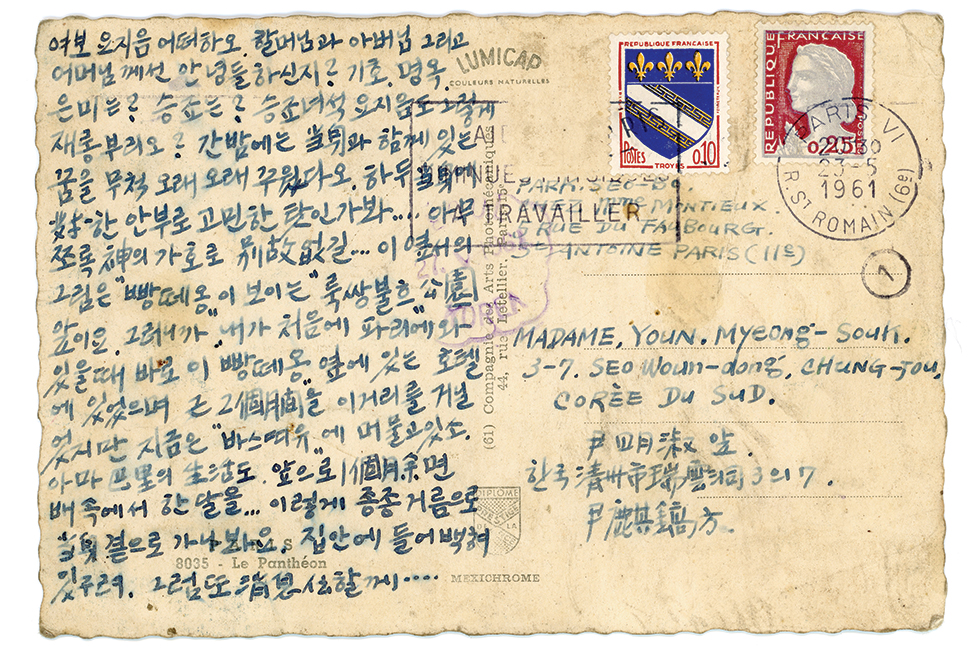 여보 요지음 어떠하오. 할머님과 아버님 그리고
어머님께선 안녕들하신지? 기호, 명옥,
은미는? 승조는? 승조녀석 요지음도 그렇게
재롱부리오? 간밤에는 當身과 함께 있는
꿈을 무척 오래 오래 꾸웠다오. 하두 當身에
안부로 고민한 탓인가봐.... 아무
쪼록 神의 가호로 別故없길... 이 옆서의
그림은 "빵떼옹"이 보이는 "룩쌍불흐"公園
앞이요. 그러니까, 내가 처음에 "파리"에 와
있을때 바로 이 "빵떼옹" 옆에 있는 호텔
에 있었으며 근 2個月間을 이거리를 거닐
었지만 지금은 에 머물고있소.
아마 巴里의 生活도. 앞으로 1個月余면
배속에서 한달을... 이렇게 종종 거름으로
當身 곁으로 가나봐요. 집안에 들어 백혀
있구려. 그럼 또 消息 伝할께....
LUMICAP
COULEURS NATURELLES
REPUBLIQUE FRANCAISE
POSTES TROYES 0,10
REPUBLIQUE FRANCAISE
0,25F
PARIS VI
23-5
1961
R. ST ROMAIN (6e)
TRAVAILLER
PARK. SEO-BO.
CHEZ MME MONTIEUX
5 RUE DU FAUBOURG.
ST ANTOINE PARIS (11e)
1
(61) Compagnie des Arts Photomécaniques
44, rue Letellier, Paris-15e
MADAME, YOUN. Myeong-Souk.
3-7. SEO Woun-dong, CHUNG-JOU,
CORÉE DU SUD.
尹明淑 앞.
한국 淸州市瑞雲洞 3의 7.
尹麒鎬方.
DIPLOME
PRESTIGE
DE LA
8035 - Le Panthéon
MEXICHROME